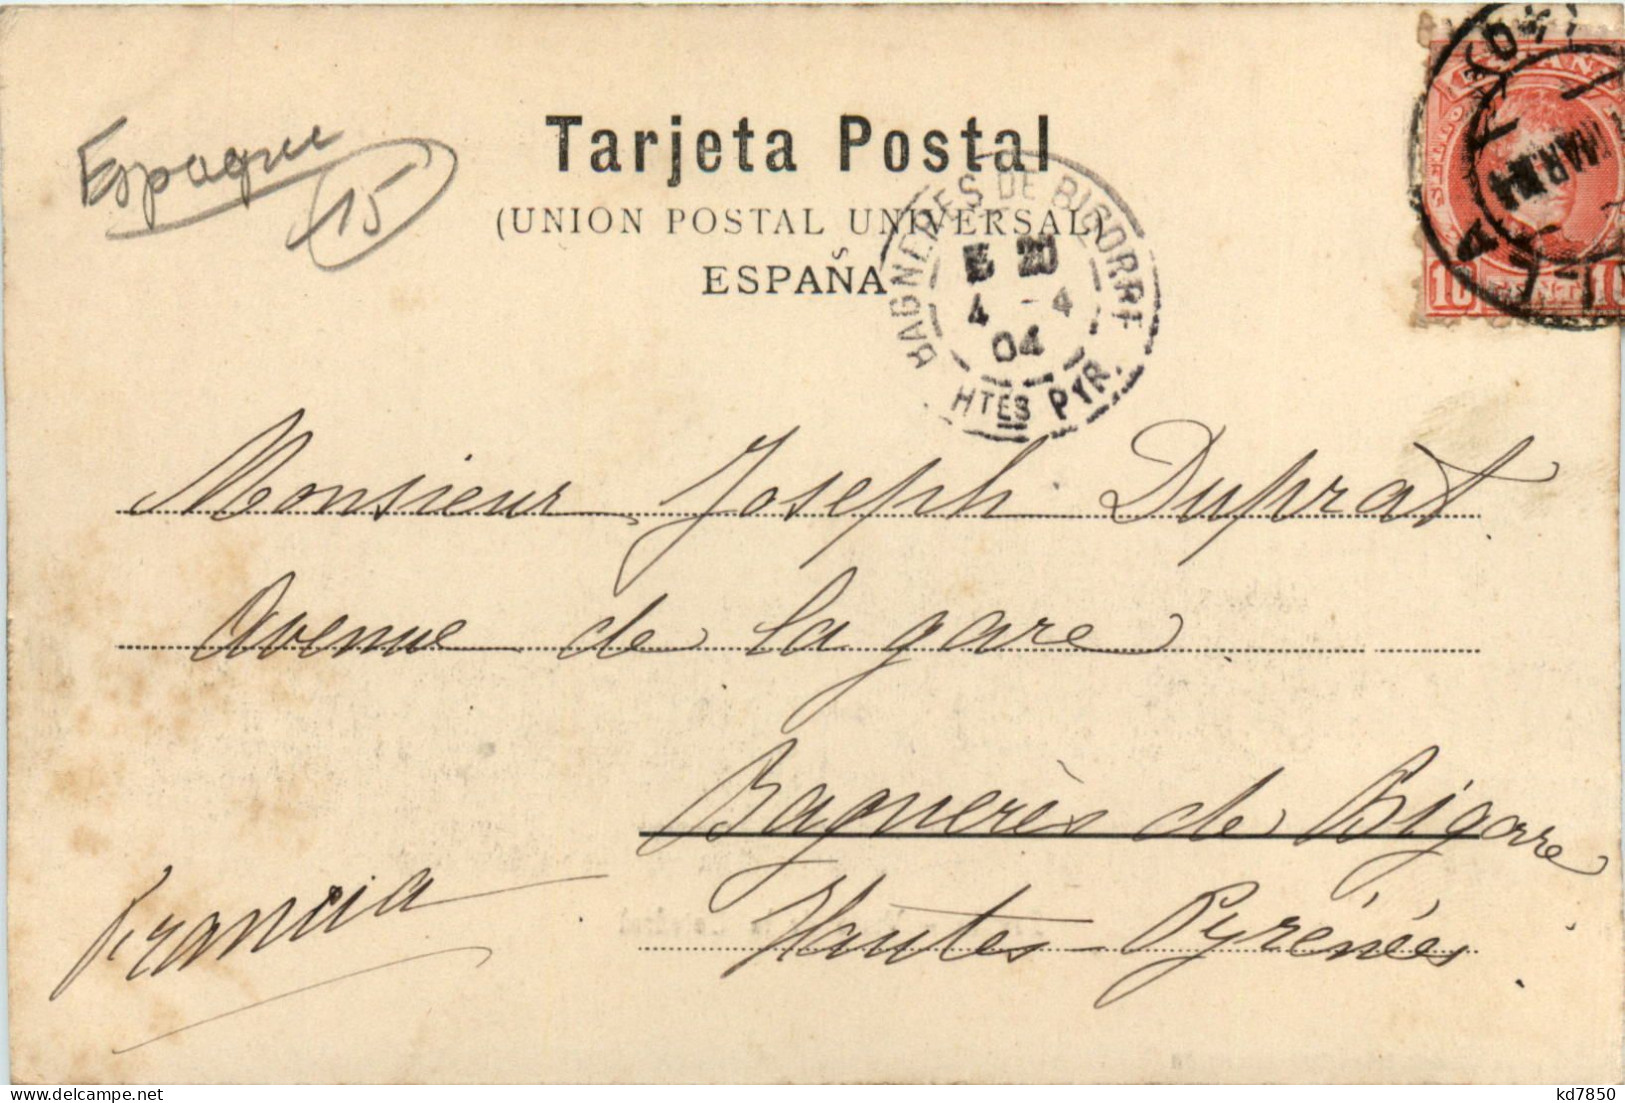 Espagne
15
Tarjeta Postal
(UNION POSTAL UNIVERSAL)
ESPAÑA
BAGNERES DE BIGORRE
E 20
4 - 4
04
HTES PYR.
MAR 04
10 CENT 10
Monsieur Joseph Duprat
Avenue de la gare
Bagnerès de Bigorre
Hautes Pyrénées
Francia
kd7850